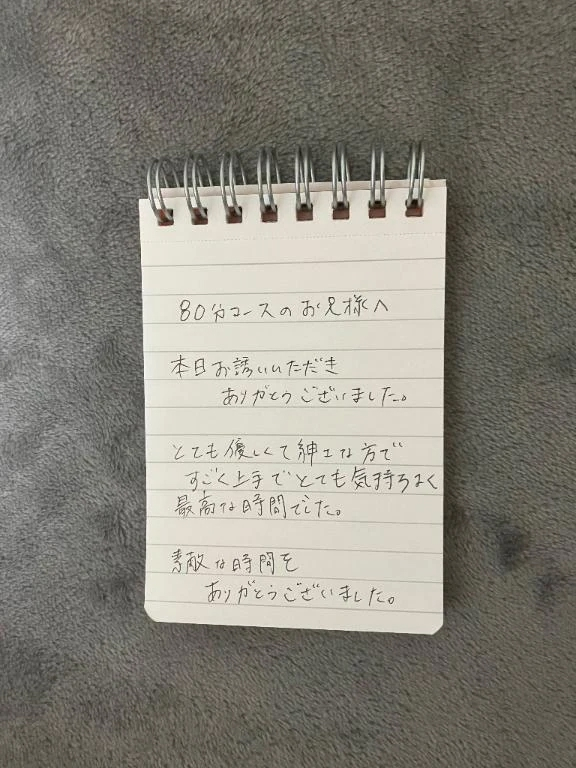 80分コースのお兄様へ
本日お誘いいただき
ありがとうございました。
とても優しくて紳士な方で
すごく上手でとても気持ちよく
最高な時間でした。
素敵な時間を
ありがとうございました。